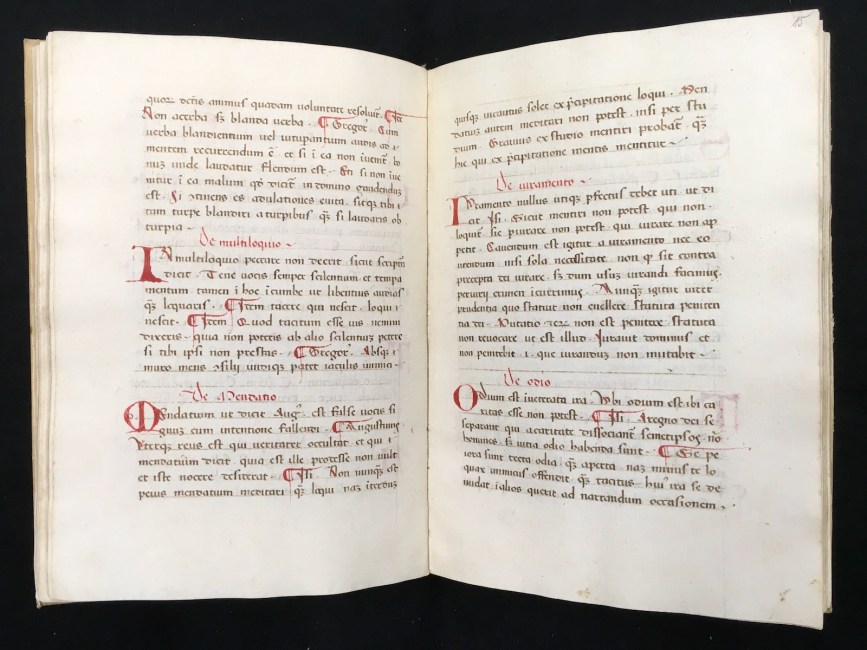 15
animus quadam voluntate resoluit . Itē
Non acerba sȝ blanda verba . Gregoꝛ . Cum
verba blandientum vel vituꝑantum audis ad
mentem recurrendum ē . et si ī ea non
unde laudatur flendum est . Et si non
ī ea malum qđ dicit in domino gaudendum
est . Si es adulationes euita . sitqꝫ tibi
tam turpe blandiri a turpibus qꝫ si lauderis ob
turpia .
De multiloquio .
In multiloquio peccare non deerit sicut
dicit . Tene vocis semper scilentium et tempa
mentum tamen ī hoc libentius audias
qꝫ loquaris . Item tacere qui nescit . loqui
nescit . Item Quod tacitum esse vis nemini
dixeris . quia non poteris ab alio scilentium petere
si tibi ipsi non prestas . Gregoꝛ . Absqꝫ
muro mens undiqꝫ patet iaculis inimici .
De Mendatio
Mendatium ut dicit Aug⁹ . est false vocis si
gnum cum intentione fallendi . Augustinus
Uterqꝫ reus est qui veritatem occultat et qui
mendatium dicit . quia est ille prodesse non vult
et iste nocere desiderat . Isi . Non est
peius mendatium meditari qꝫ loqui
quisqꝫ incautus solet ex p̄cipitatione loqui . Men
datium autem meditari non potest . nisi per stu
dium . Grauius ex studio mentiri probat . qꝫ
hic qui ex p̄cipitatione mentis mentitur .
De iuramento .
Iuramento nullus utiqꝫ pfectus debet uti ut di
cit Isi . Sicut mentiri non potest qui non
loquit sic piurare non potest qui iurare non ap
petit . Cauendum est igitur a iuramento nec eo
utendum nisi sola necessitate . non ꝙ sit contra
precepta dei iurare . sȝ dum usum iurandi facimus .
periurii crimen incurrimus . Nunqꝫ igitur iuret
prudentia quo statuit non euellere statuta peniten
tia dei . non est penitere statuta
non reuocare ut est illud . Iurauit dominus et
non penitebit . i . que iurauit non mutabit .
De odio
Odium est inuetata ira . Ubi odium est ibi ca
ritas esse non potest . Isi . A regno dei se
separant qui a caritate dissociant semetipsos . nō
homines . sȝ vitia odio habenda sunt . pe
iora sunt tecta odia qꝫ aperta . naȝ minus te lo
quax inimicus offendit qꝫ tacitus . hui⁹ ira se de
nudat . ī alios querit ad nattandum occasionem .